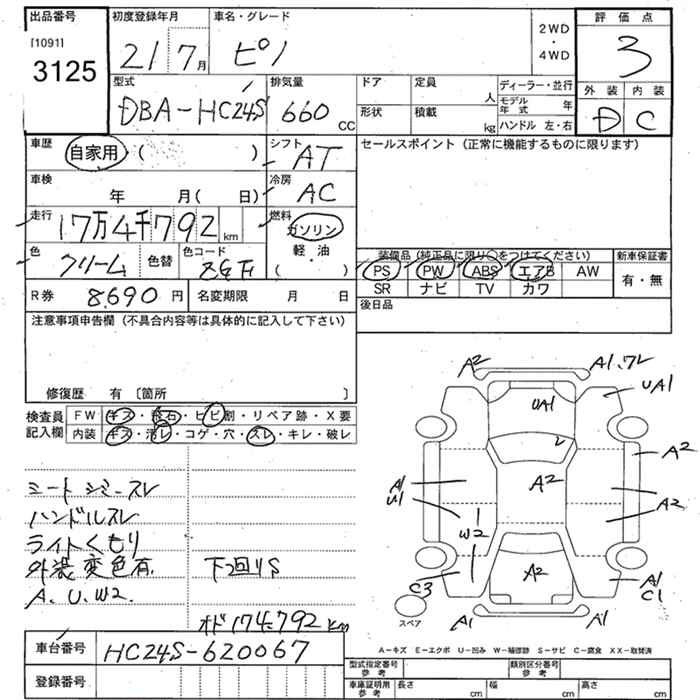 出品番号 初度登録年月 車名・グレード 評価点
[1091] 2WD・4WD
3125 21 7月 ピノ 3
型式 排気量 ドア 定員 人 ディーラー・並行 外装 内装
DBA-HC24S 660 CC 形状 積載 kg モデル年式 年 D C
ハンドル 左・右
車歴 自家用 ( ) シフト AT セールスポイント (正常に機能するものに限ります)
車検 年 月( 日) 冷房 AC
走行 17万4千792 km 燃料 ガソリン
軽・油
( )
色 クリーム 色替 色コード
装備品 (純正品に限り○をつけてください) 新車保証書
PS PW ABS エアB AW 有・無
SR ナビ TV カワ
R券 8,690円 名変期限 月 日 後日品
注意事項申告欄 (不具合内容等は具体的に記入して下さい)
修復歴 有 〔箇所 〕
検査員記入欄 FW キズ・飛石・ヒビ割・リペア跡・X要
内装 キズ・汚レ・コゲ・穴・スレ・キレ・破レ
シートシミ・スレ
ハンドルスレ
ライトくもり
外装変色有. 下回りS
A. U. W2.
オド 174,792 km
A2 A1、ワレ
UA1 UA1
A2
A1 U1 A2 A2
W2
C3 A2 A1 C1
スペア A1 A1
A-キズ E-エクボ U-凹み W-補修跡 S-サビ C-腐食 XX-取替済
車台番号 HC24S-620067
登録番号
型式指定番号 参考 類別区分番号 参考
車庫証明用 参考 長さ cm 幅 cm 高さ cm